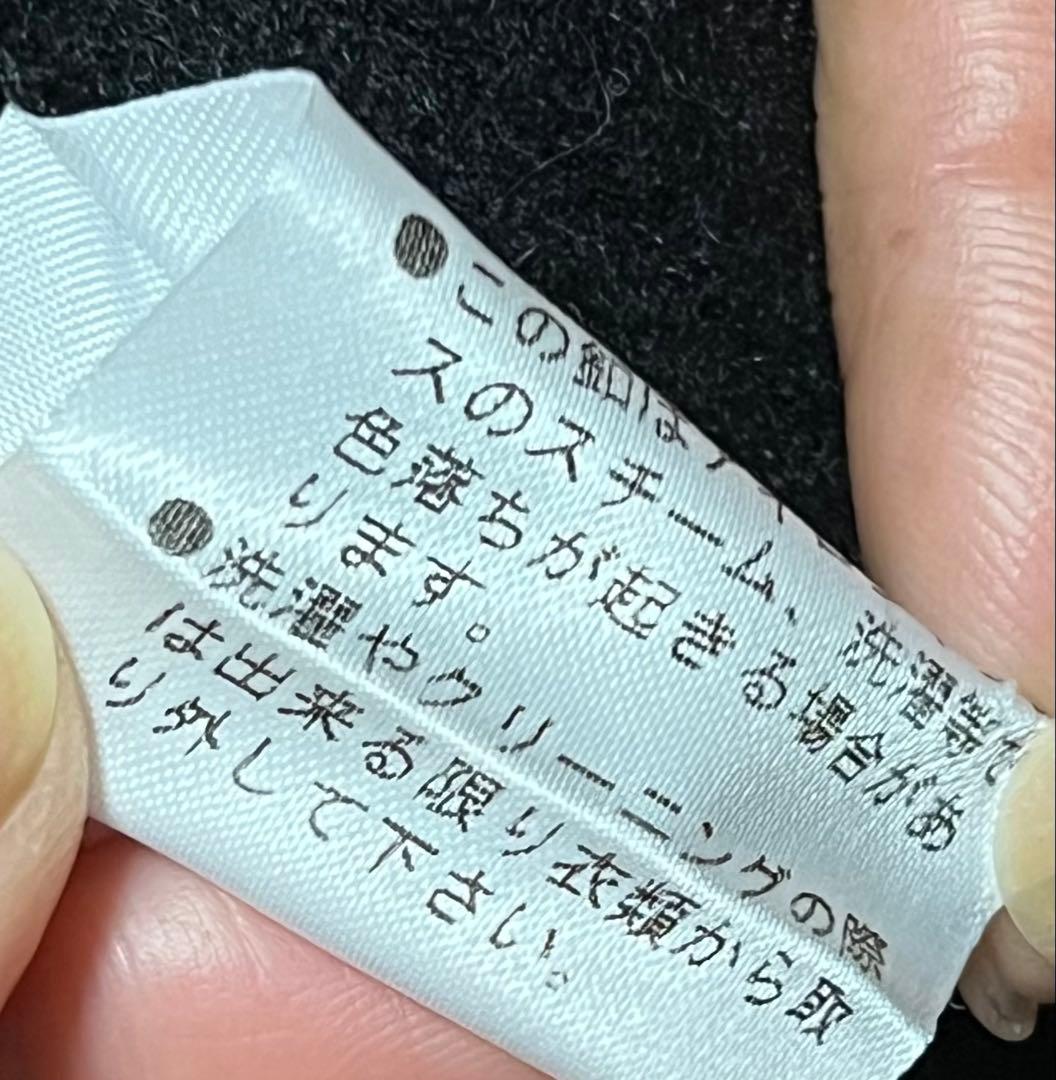 ●この釦は
スのスチーム、洗濯等で
色落ちが起きる場合があ
ります。
●洗濯やクリーニングの際
は出来る限り衣類から取
り外して下さい。